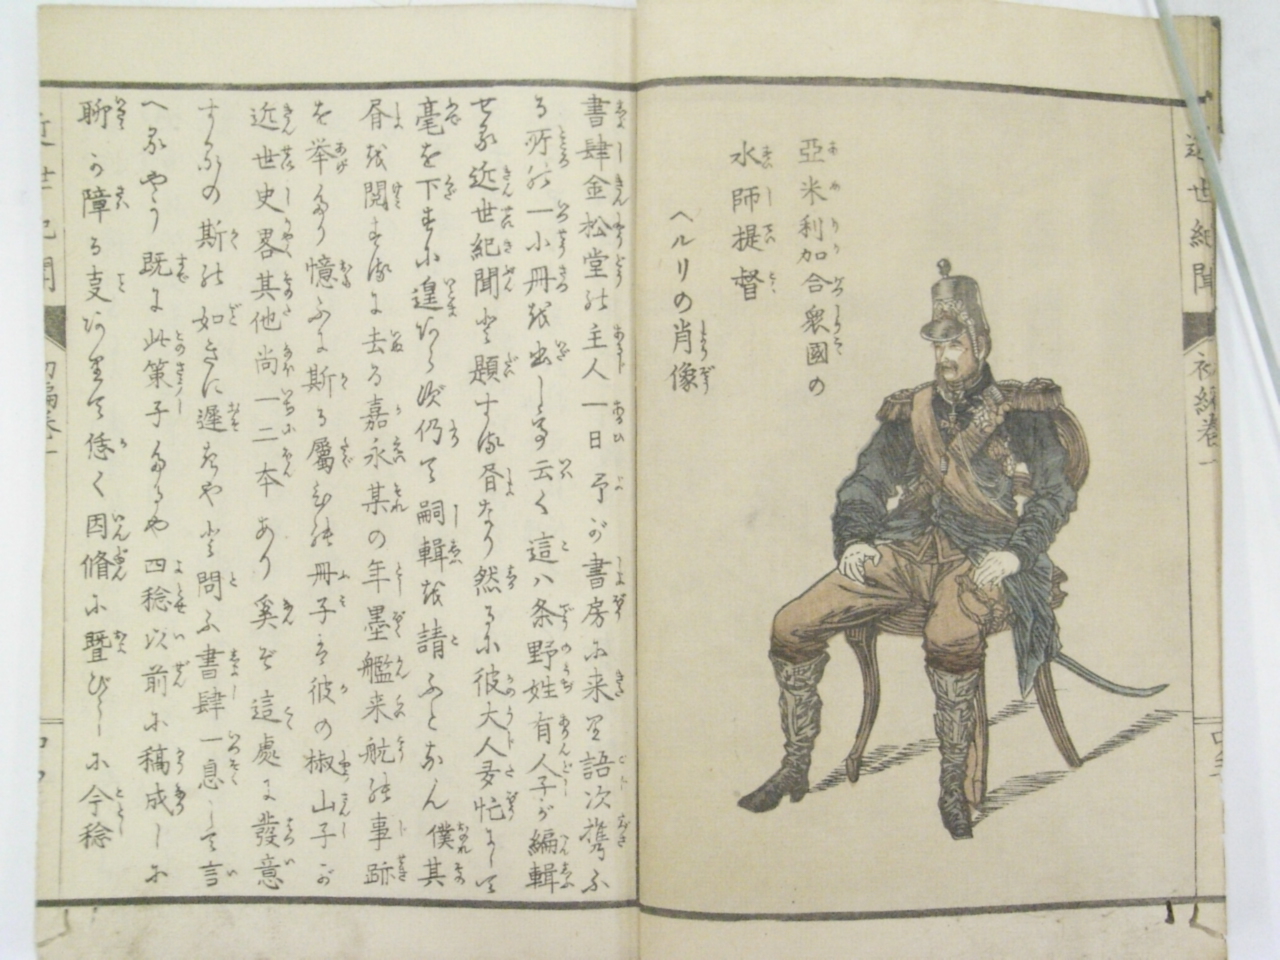 近世紀聞
初編巻一
亜米利加合衆國の
水師提督
ヘルリの肖像
書肆金松堂の主人一日予が書房に来り語次携ふ
る所の一小冊を出して云く這ハ条野姓有人子が編輯
せる近世紀聞と題する冊なり然るに彼大人多忙にして
毫を下すに遑あらず仍て嗣輯を請ふとなん僕其
冊を閲するに去る嘉永某の年墨艦来航の事跡
を挙たり憶ふに斯る属ひの冊子は彼の椒山子が
近世史畧其他尚一二本あり奚ぞ這處に發意
するの斯の如きに遲きやと問ふ書肆一息して言
へるやう既に此策子たるや四稔以前に稿成しに
聊か障る支ありて恁く因循に曁びしに今稔
近世紀聞
初編巻一